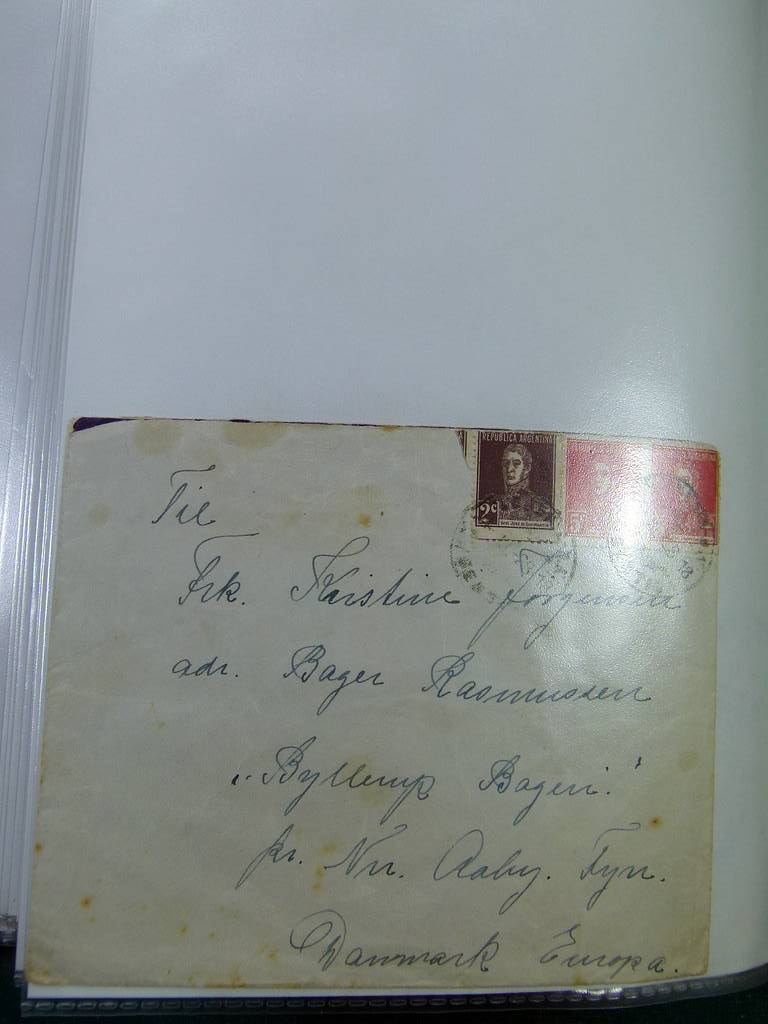 REPUBLICA ARGENTINA
2c
Til
Frk. Kristine Jörgensen
adr. Bager Rasmussen
"Byllerup Bageri."
pr. Nrr. Aaby. Fyn.
Danmark Europa.